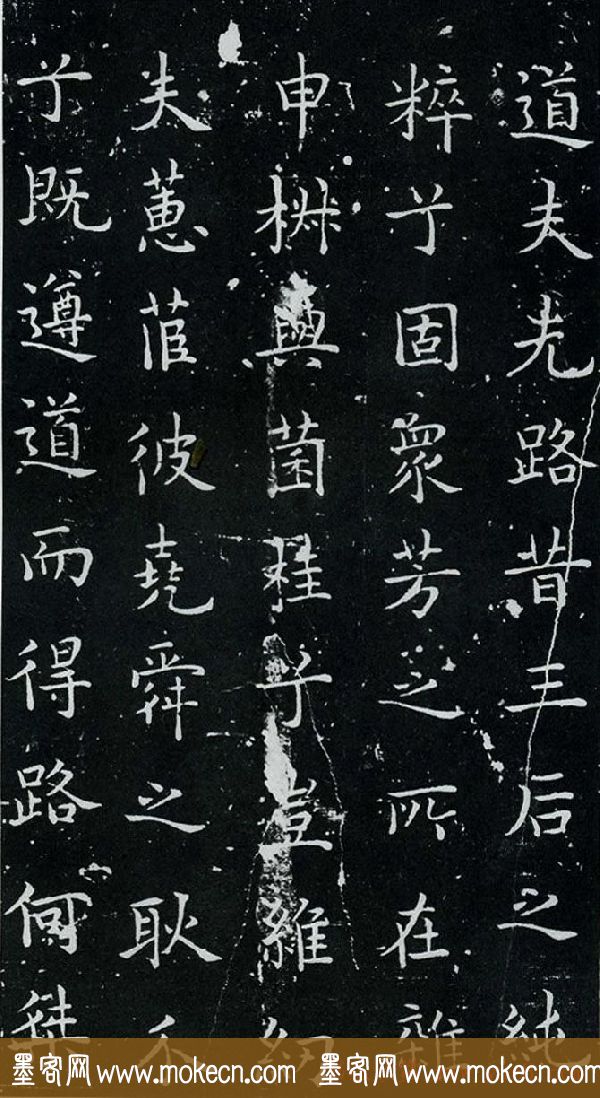 道夫先路昔三后之純
粹兮固衆芳之所在雜
申椒與菌桂兮豈維紉
夫蕙茞彼堯舜之耿介
兮既遵道而得路何桀
墨客网 www.mokecn.com 墨客网 www.mokecn.com